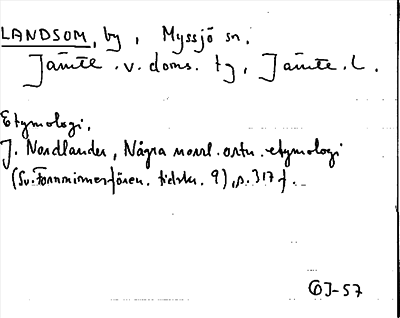 LANDSOM, by, Myssjö sn.
Jämte. v. doms. tg, Jämte. l.
Etymologi.
J. Nordlander, Några norrl. ortn. etymologi
(Sv. Fornminnesfören. tidskr. 9), s. 317 f.
-57